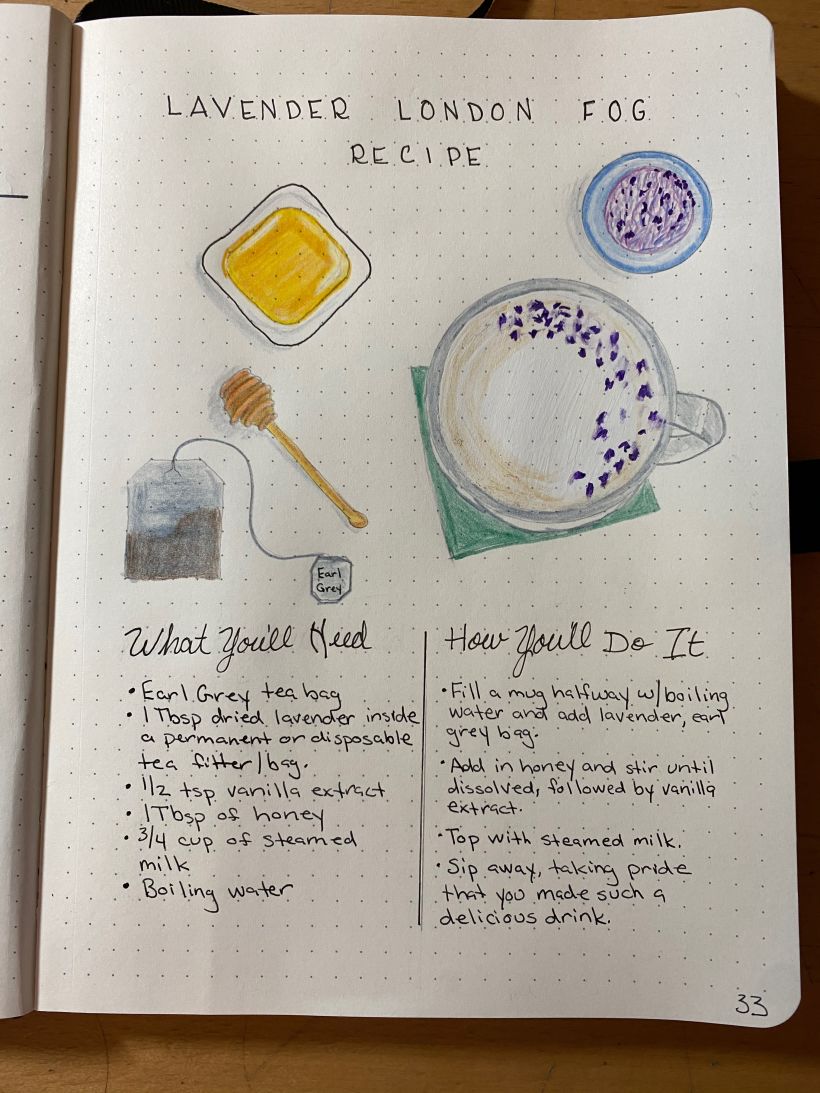 LAVENDER LONDON FOG
RECIPE
Earl
Grey
What You'll Need
• Earl Grey tea bag
• 1 Tbsp dried lavender inside
a permanent or disposable
tea filter/bag.
• 1/2 tsp vanilla extract
• 1 Tbsp of honey
• 3/4 cup of steamed
milk
• Boiling water
How You'll Do It
• Fill a mug halfway w/boiling
water and add lavender, earl
grey bag.
• Add in honey and stir until
dissolved, followed by vanilla
extract.
• Top with steamed milk.
• Sip away, taking pride
that you made such a
delicious drink.
33